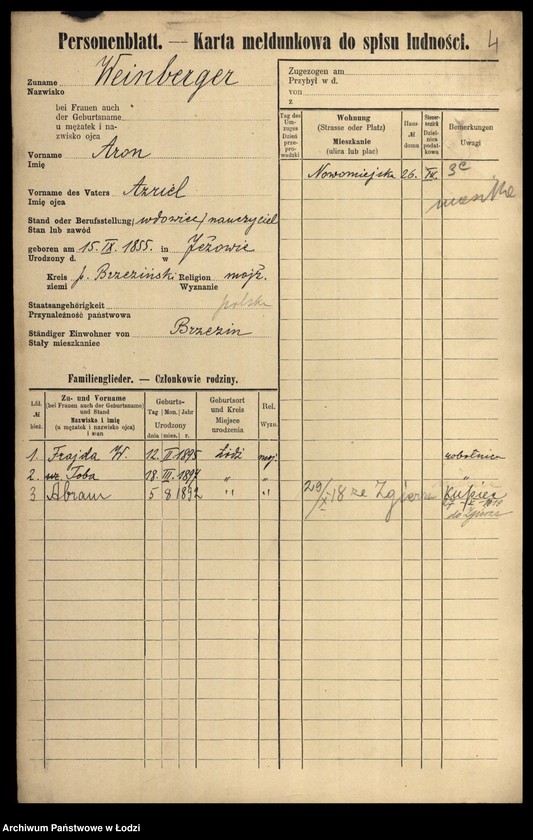 Personenblatt. — Karta meldunkowa do spisu ludności. 4
Zuname Weinberger
Nazwisko
bei Frauen auch
der Geburtsname
u mężatek i na-
zwisko ojca
Vorname Aron
Imię
Vorname des Vaters Azriel
Imię ojca
Stand oder Berufsstellung (wdowiec) nauczyciel
Stan lub zawód
geboren am 15. IX. 1855. in Jeżowie
Urodzony d. w
Kreis p. Brzeziński Religion mojż.
ziemi Wyznanie
Staatsangehörigkeit polska
Przynależność państwowa
Ständiger Einwohner von Brzezin
Stały mieszkaniec
Zugezogen am
Przybył w d.
von
z
Tag des Um-zuges Dzień prze-prowadzki
Wohnung
(Strasse oder Platz)
Mieszkanie
(ulica lub plac)
Haus- № domu
Steuer-bezirk Dzielnica podat-kowa
Bemerkungen
Uwagi
Nowomiejska 26. IV. 3c
Familienglieder. — Członkowie rodziny.
Lfd. № bież.
Zu- und Vorname
(bei Frauen auch der Geburtsname)
und Stand
Nazwisko i imię
(u mężatek i nazwisko ojca)
i stan
Geburts-
Tag Mon. Jahr
Urodzony
dnia mies. r.
Geburtsort
und Kreis
Miejsce
urodzenia
Rel.
Wyzn.
1. Frajda W. 12. II. 1895 Łódź moj. robotnica
2. Toba 18. III. 1897 " " "
3 Abram 5 8 1892 " " 29/X 18 ze Zgierza Kupiec
do Zgierza
Archiwum Państwowe w Łodzi